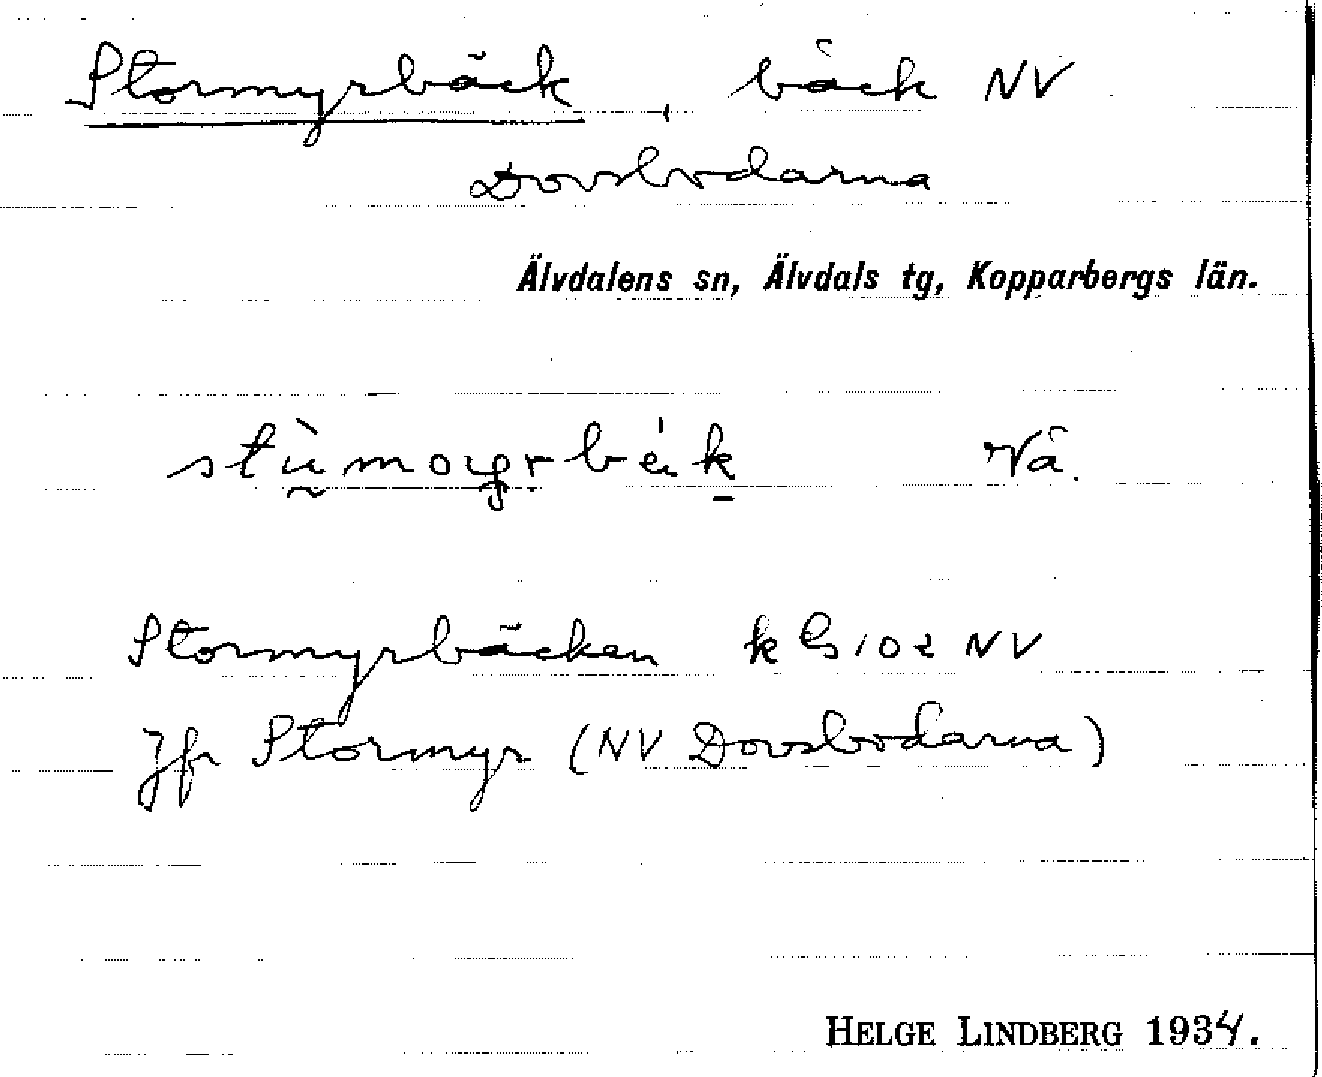 Stormyrbäck, bäck NV
Dovsbodarna
Älvdalens sn, Älvdals tg, Kopparbergs län.
Vå.
Stormyrbäcken k G 102 NV
Jfr Stormyr (NV Dovsbodarna)
HELGE LINDBERG 1934.